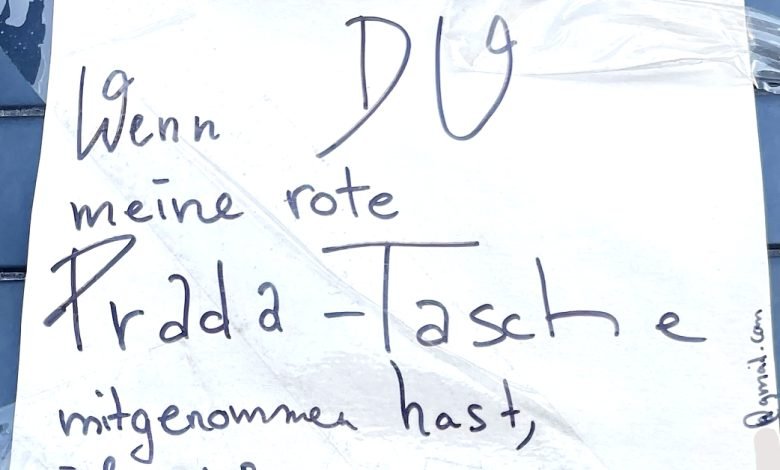 Wenn DU
meine rote
Prada-Tasche
mitgenommen hast,
@gmail.com